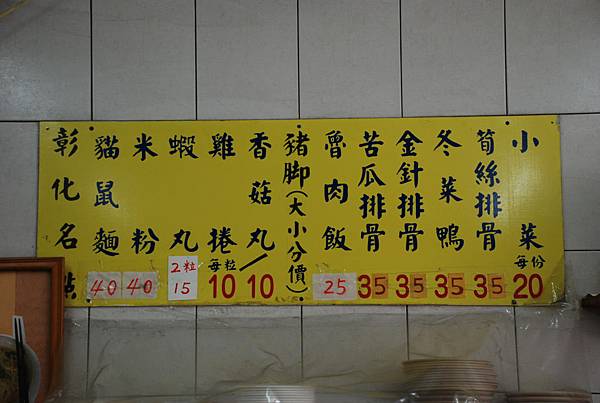 彰化名點
貓鼠麵 40
米粉 40
蝦丸 2粒 15
雞捲 每粒 10
香菇丸 10
豬腳(大小分價)
魯肉飯 25
苦瓜排骨 35
金針排骨 35
冬菜鴨 35
筍絲排骨 35
小菜 每份 20